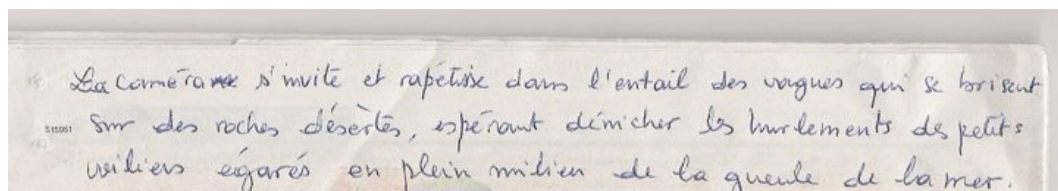 La caméra s'invite et rapetisse dans l'entail des vagues qui se brisent
515061 sur des roches désertes, espérant dénicher les hurlements des petits
voiliers égarés en plein milieu de la gueule de la mer.